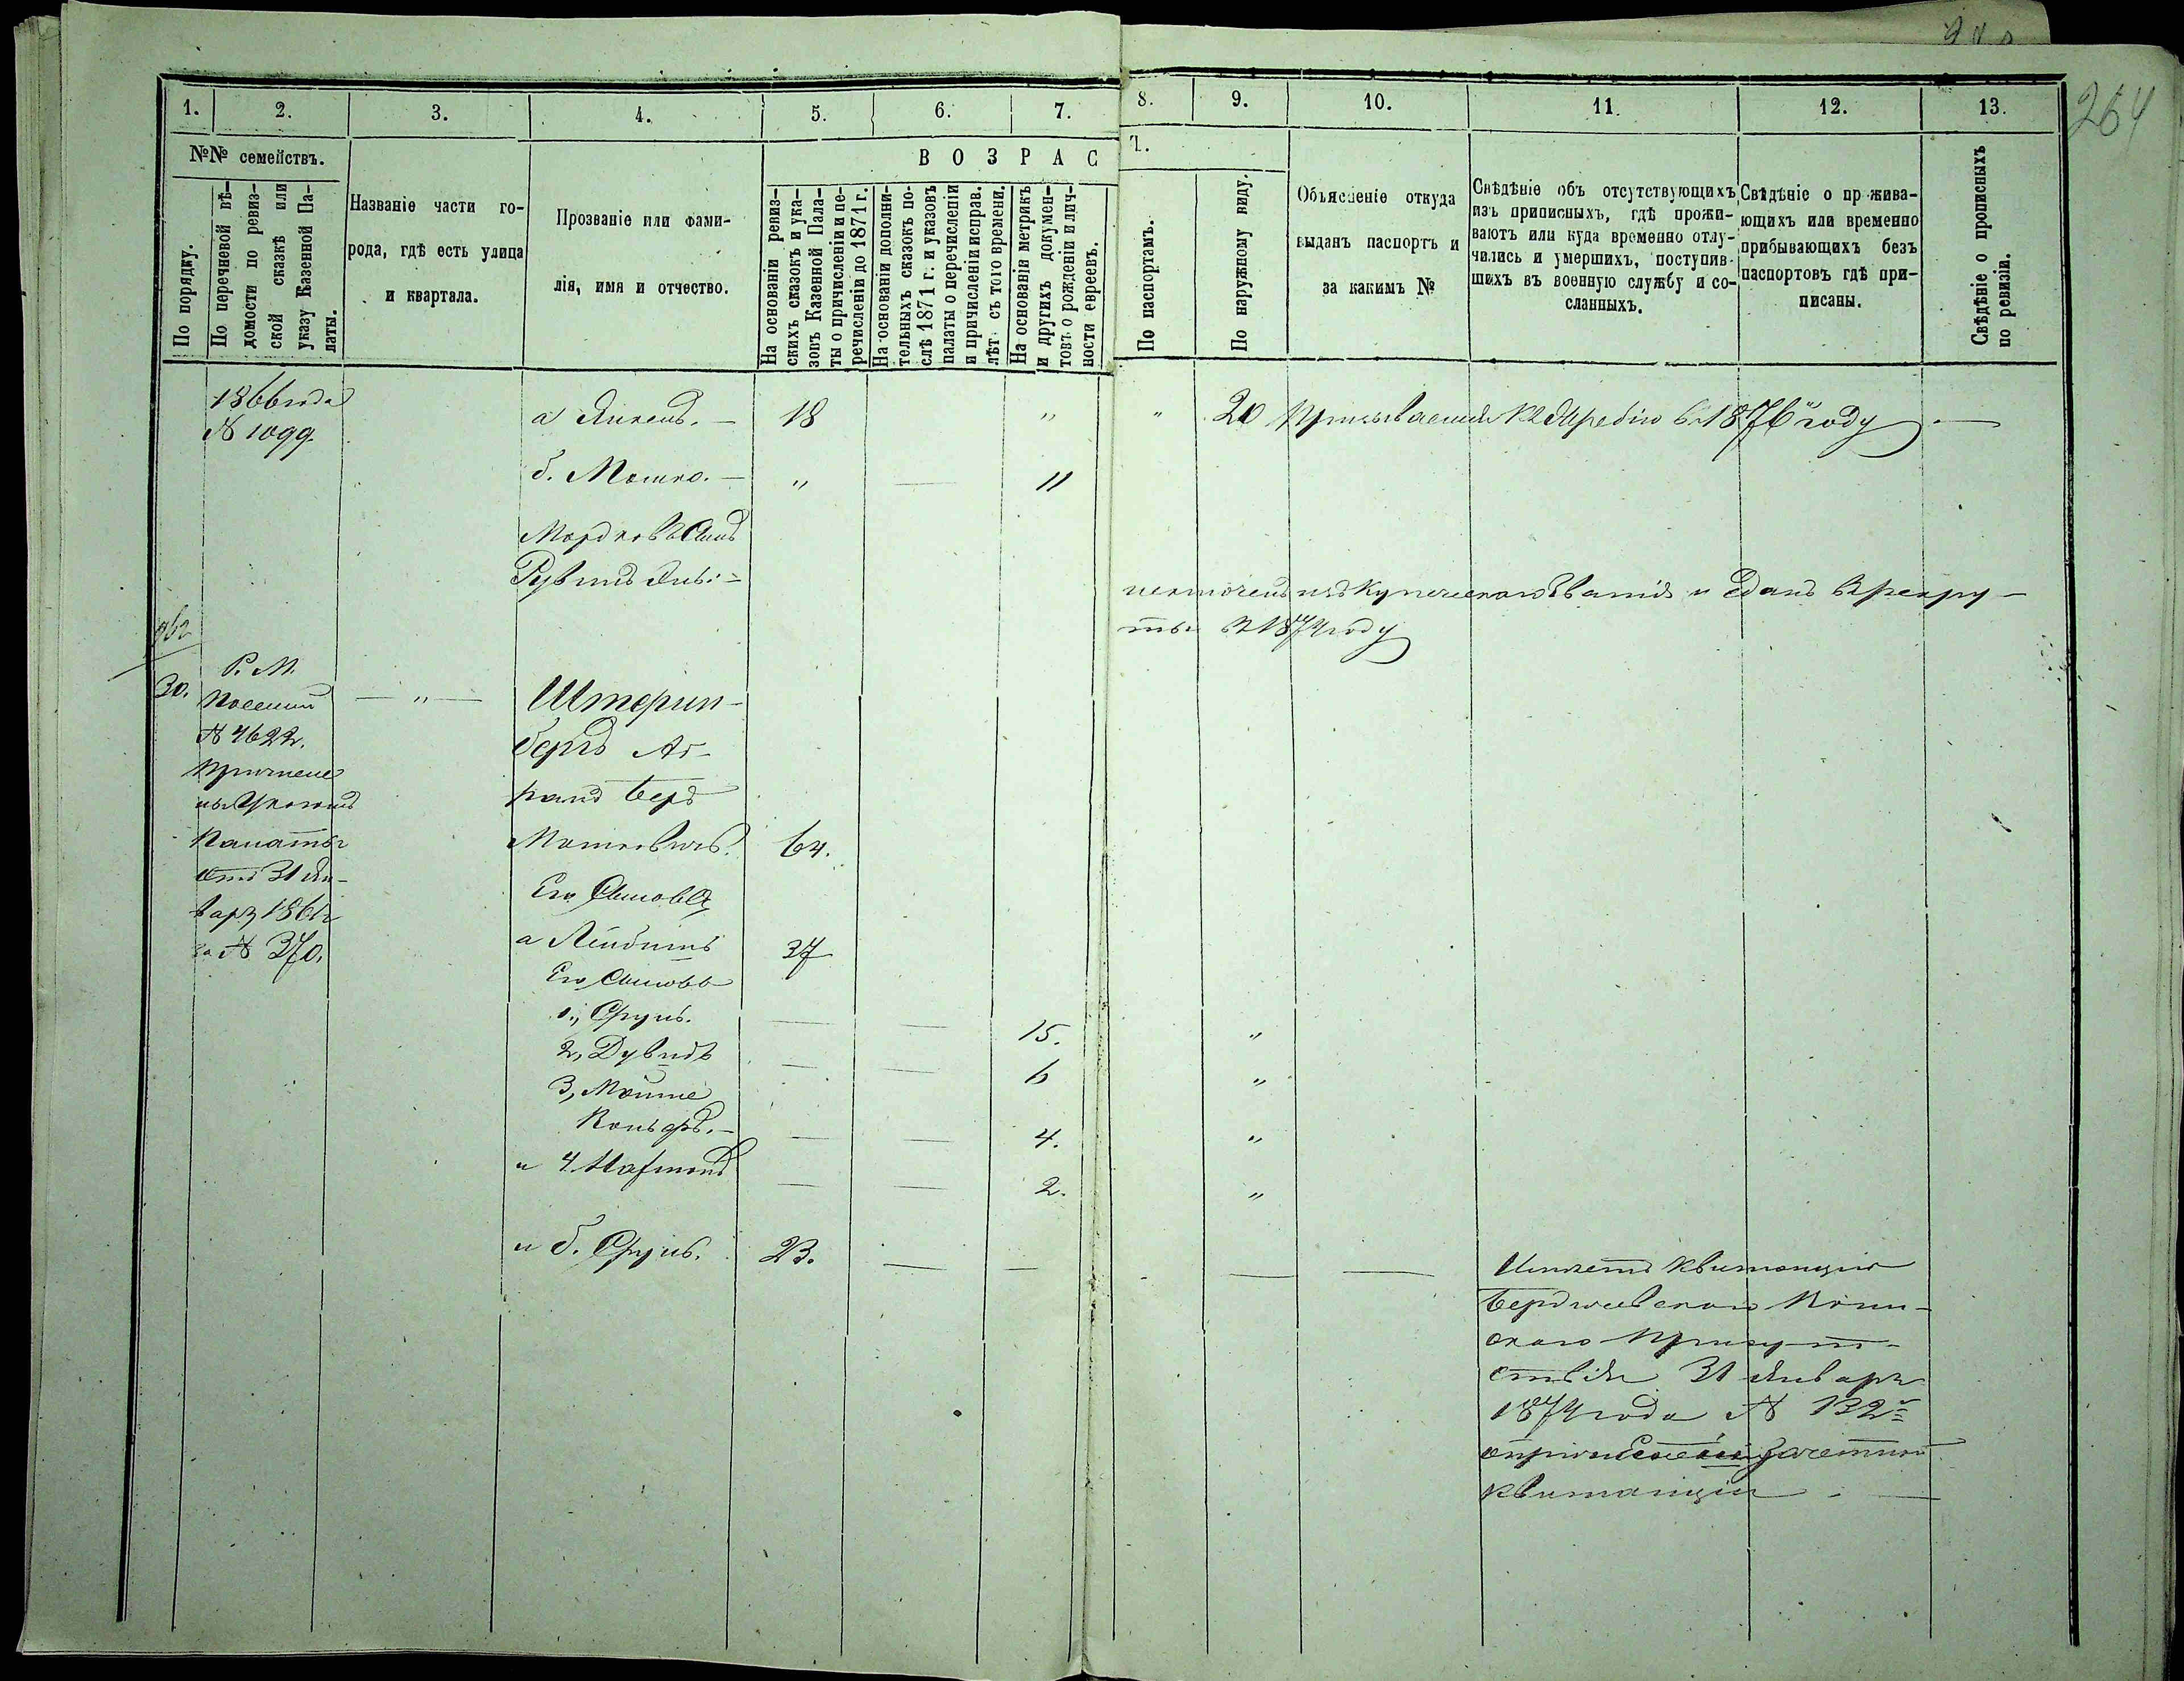 264
1. 2. 3. 4. 5. 6. 7. 8. 9. 10. 11. 12. 13.
№№ семействъ.
По порядку.
По перечневой вѣ-
домости по ревиз-
ской сказкѣ или
указу Казенной Па-
латы.
Названіе части го-
рода, гдѣ есть улица
и квартала.
Прозваніе или фами-
лія, имя и отчество.
ВОЗРАСТ.
На основаніи ревиз-
скихъ сказокъ и ука-
зовъ Казенной Пала-
ты о причисленіи и пе-
речисленіи до 1871 г.
На основаніи дополни-
тельныхъ сказокъ по-
слѣ 1871 г. и указовъ
палаты о перечисленіи
и причисленіи исправ.
лѣт. съ того времени.
На основаніи метрикъ
и другихъ докумен-
товъ о рожденіи и лич-
ности евреевъ.
По паспортамъ.
По наружному виду.
Объясненіе откуда
выданъ паспортъ и
за какимъ №
Свѣдѣніе объ отсутствующихъ
изъ приписныхъ, гдѣ прожи-
ваютъ или куда временно отлу-
чились и умершихъ, поступив-
шихъ въ военную службу и со-
сланныхъ.
Свѣдѣніе о прожива-
ющихъ или временно
прибывающихъ безъ
паспортовъ гдѣ при-
писаны.
Свѣдѣніе о прописныхъ
по ревизіи.
1866 года
№ 1099.
а Янкель. — 18 " " 20 Призывается къ жребію въ 1876 году —
б. Мошко. — " — 11
Мордковъ Сынъ
Рувинъ
исключенъ изъ Купеческаго Званія и Сданъ въ рекру-
ты въ 1874 году
30.
Р. М.
№ 4622.
Причисле
ны Указомъ
Палаты
отъ 31 Ян-
варя 1861г
за № 370.
— " —
Штерин-
бергъ Аб-
рамъ Беръ
Мошковичъ. 64.
Его Сыновья
а Лейбишъ 37
Его Сыновья
1, Сруль. — — 15. "
2, Дувидъ — — 6 "
3, Мойше
— — 4. "
и 4. — — 2. "
и б. Сруль. 23. — — — —
Имѣетъ Квитанцію
Бердичевскаго Воин-
скаго Присут-
ствія 31 Января
1874 года № 132
зачетной
квитанціи. —